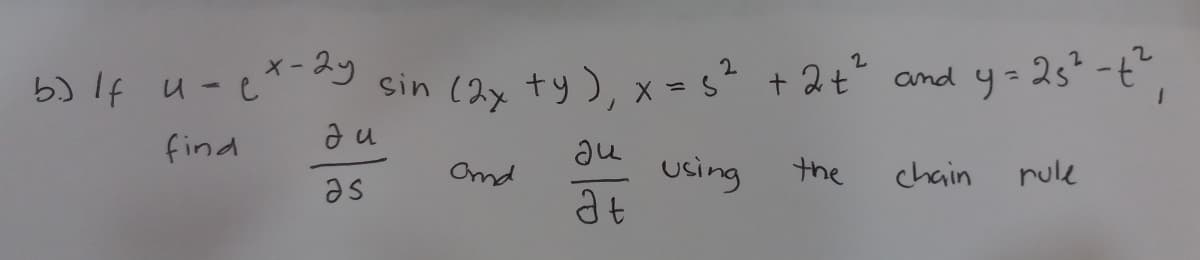 b.) If u - e^{x-2y} sin (2x + y), x = s² + 2t² and y = 2s² - t²,
find ∂u/∂s and ∂u/∂t using the chain rule